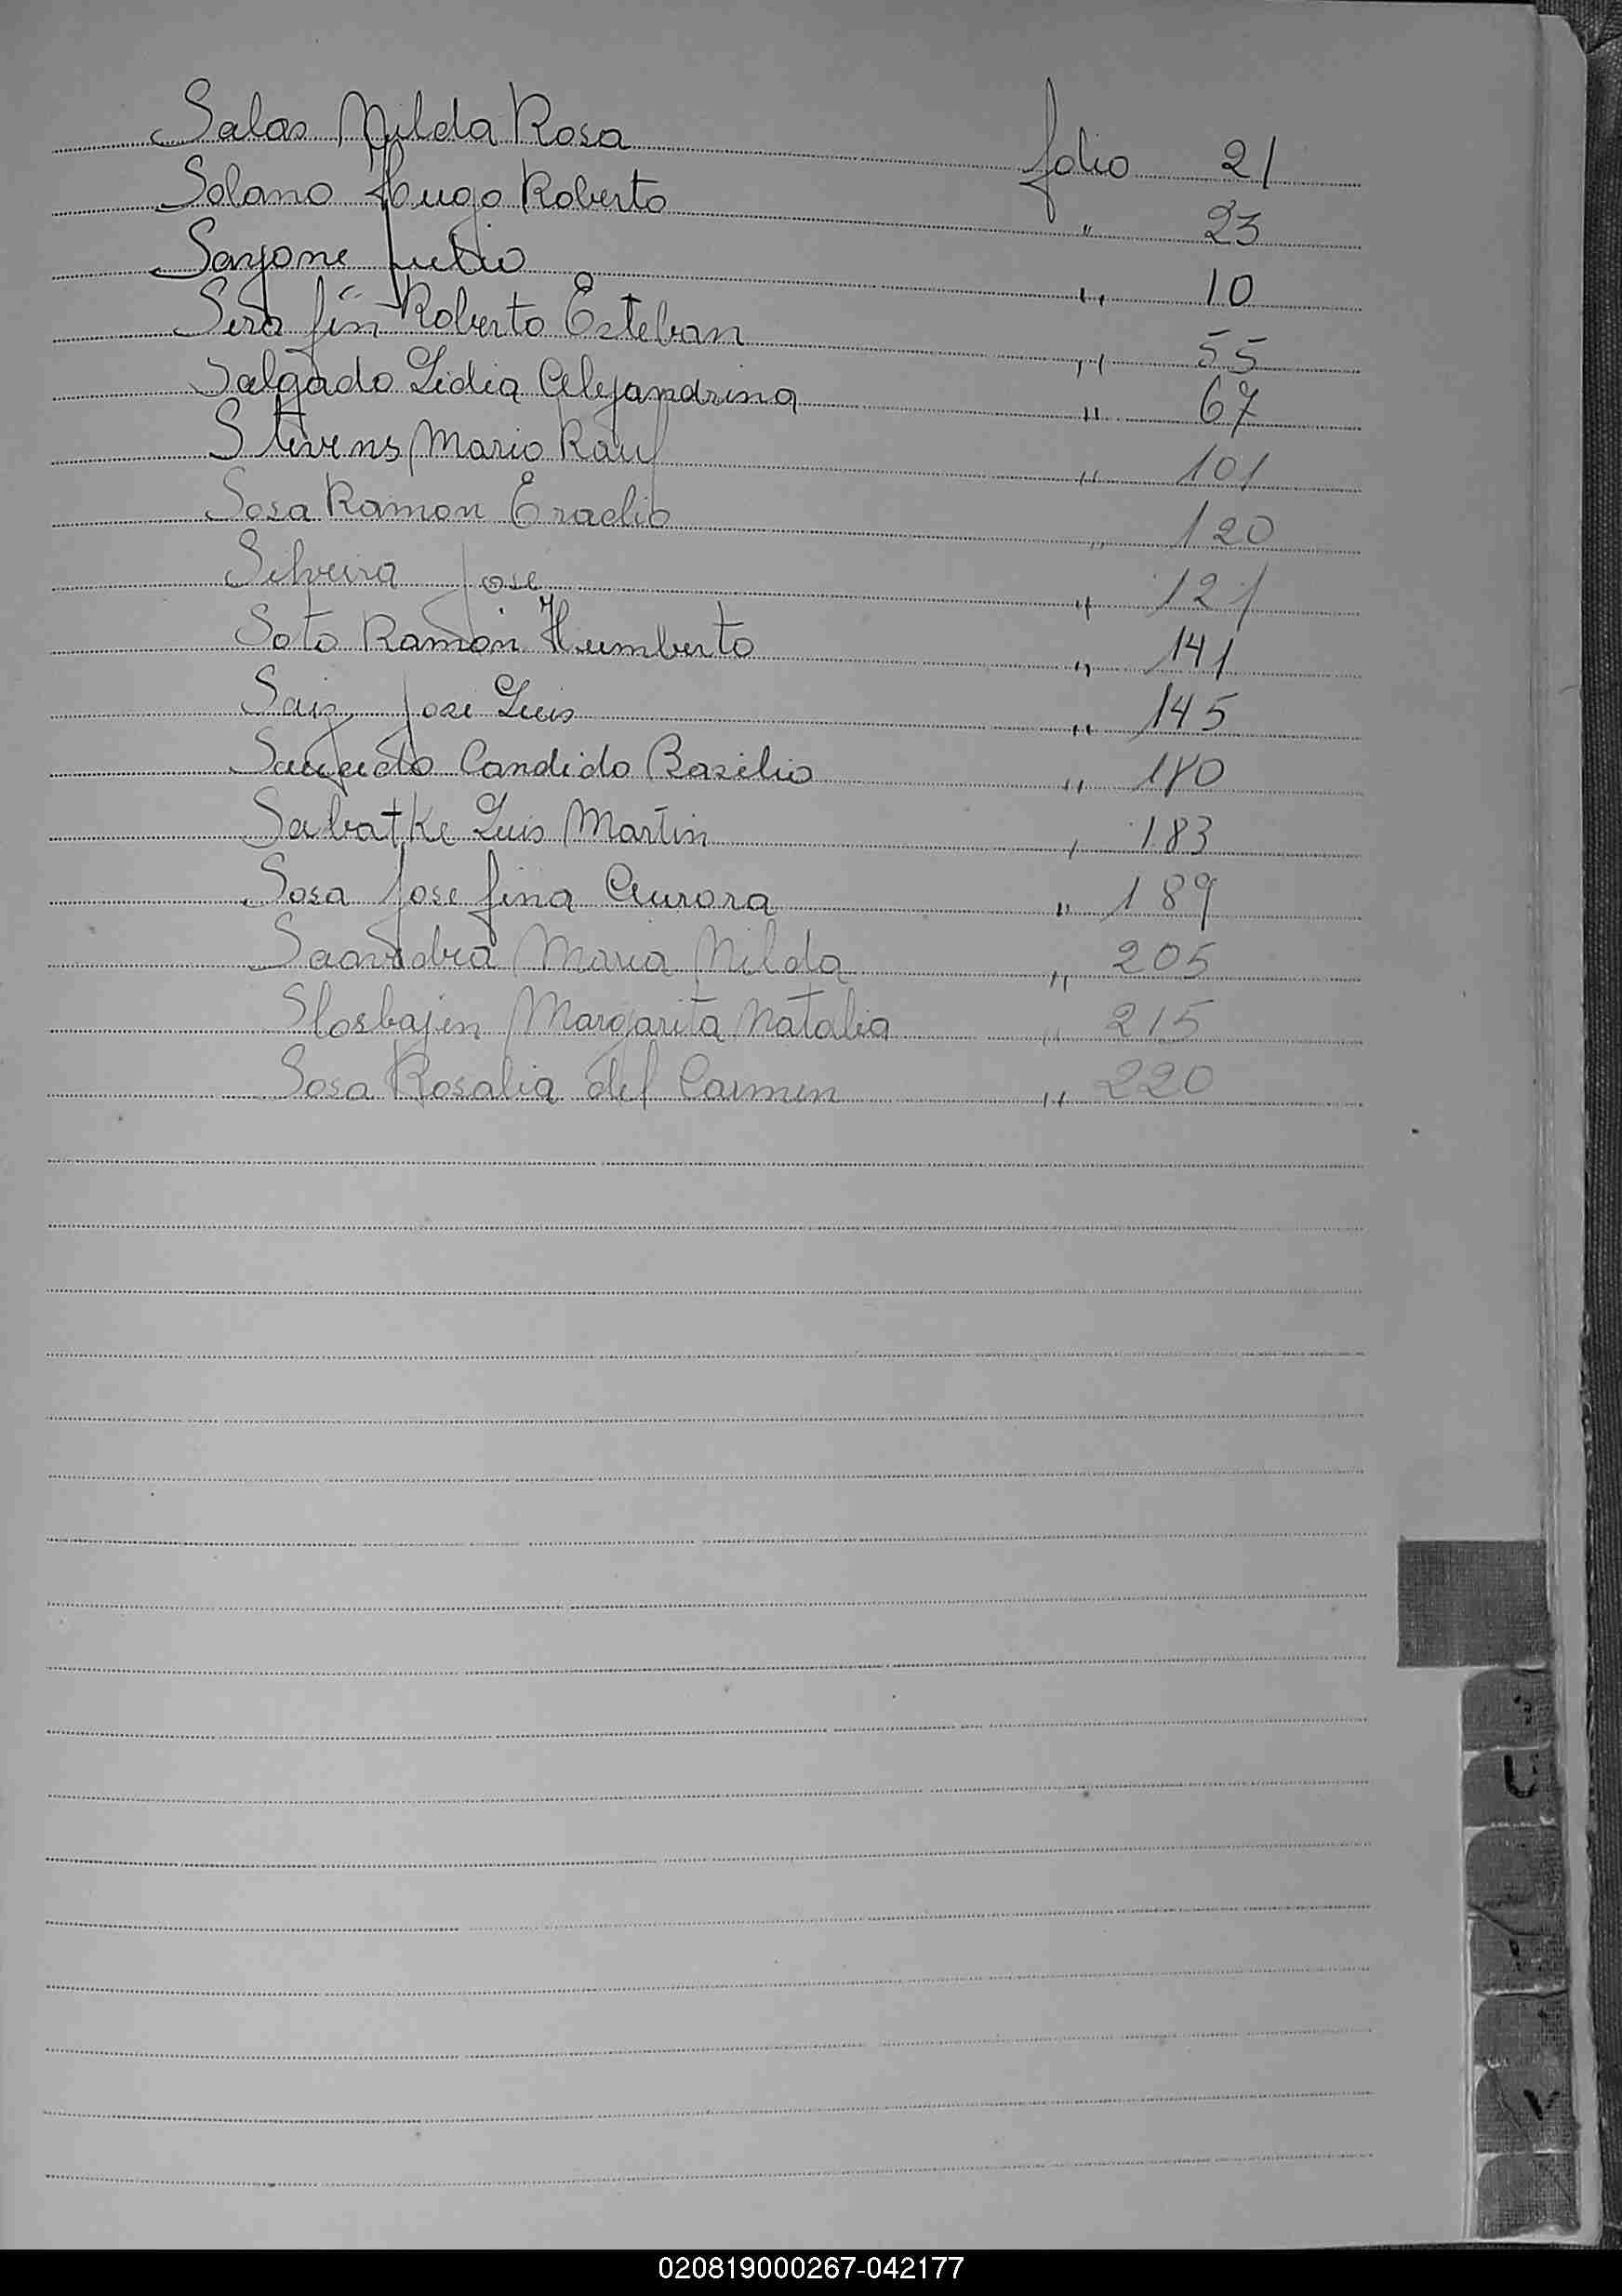 Salas Nilda Rosa folio 21
Solano Hugo Roberto " 23
Sayone Julio " 10
Serafín Roberto Esteban " 55
Salgado Lidia Alejandrina " 67
Stevens Mario Raul " 101
Sosa Ramon Eraclio " 120
Silveira Jose " 121
Soto Ramón Humberto " 141
Saiz José Luis " 145
Candido Basilio " 180
Sabatke Luis Martín , 183
Sosa Josefina Aurora " 189
Saavedra Maria Nilda " 205
Margarita Natalia " 215
Sosa Rosalia del Carmen " 220
U
V
020819000267-042177